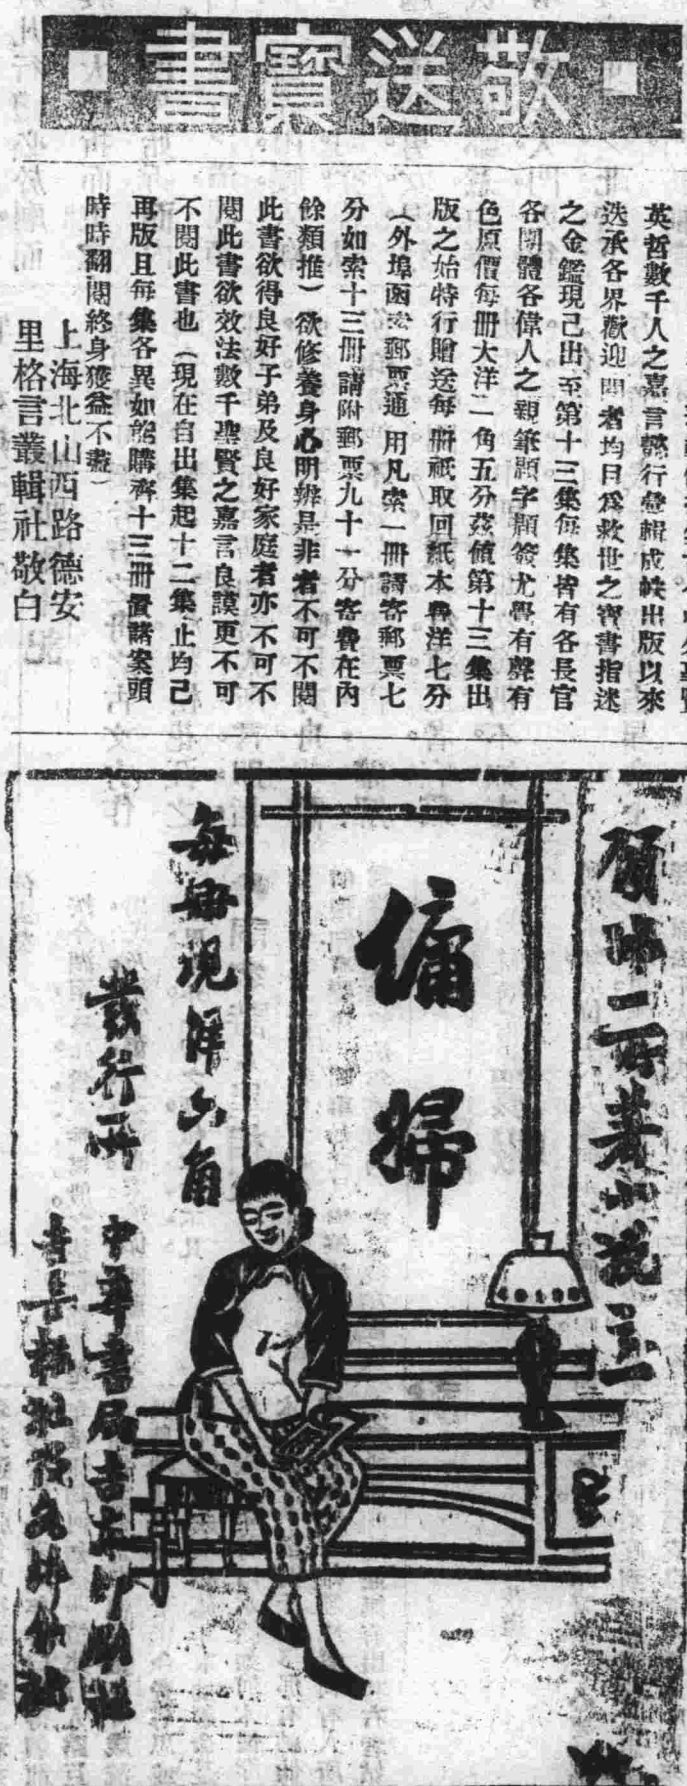 敬送寶書
英哲數千人之嘉言懿行彙輯成帙出版以來
迭承各界歡迎閱者均目為救世之寶書指迷
之金鑑現已出至第十三集每集皆有各長官
各團體各偉人之親筆題字題簽尤覺有聲有
色原價每冊大洋二角五分茲值第十三集出
版之始特行贈送每冊祇取回紙本費洋七分
(外埠函索郵票通用凡索一冊請寄郵票七
分如索十三冊請附郵票九十一分寄費在內
餘類推)欲修養身心明辨是非者不可不閱
此書欲得良好子弟及良好家庭者亦不可不
閱此書欲效法數千聖賢之嘉言良謨更不可
不閱此書也(現在自出集起十二集止均已
再版且每集各異如能購齊十三冊置諸案頭
時時翻閱終身獲益不盡)
上海北山西路德安
里格言叢輯社敬白
著小說
傭婦
每冊現洋六角
發行所
中華書局吉 印刷社
吉長